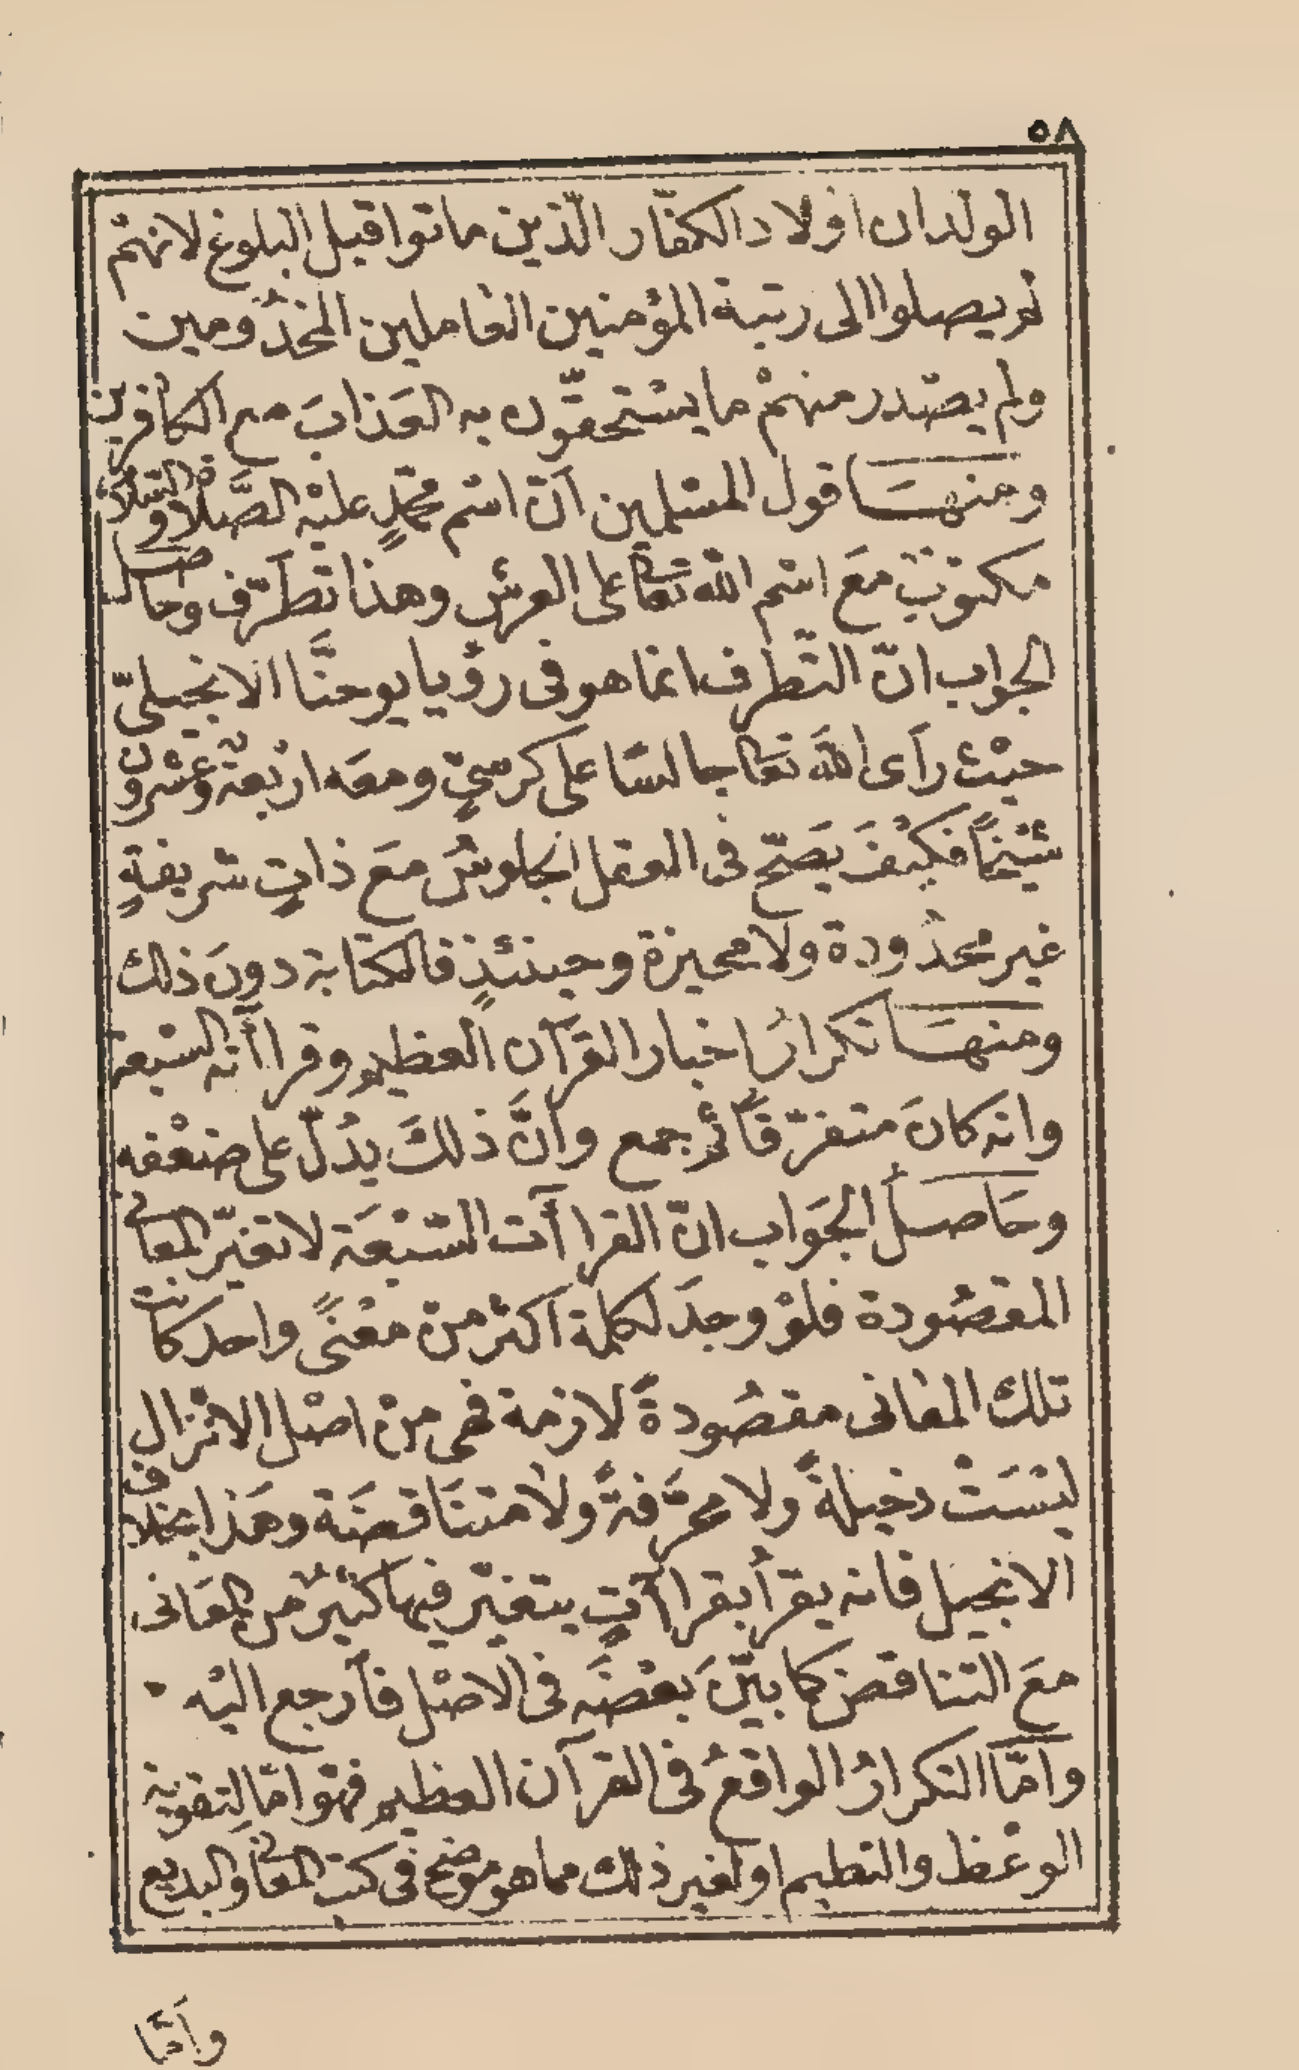 ٥٨
الولدان اوْلاد الكفّار الّذين ماتوا قبل البلوغ لانهمْ
لم يصلوا الى رتبة المؤمنين العاملين المخدُومين
ولم يصْدر منهمْ ما يسْتحقّون به العَذابَ مع الكافرين
ومنهَا قول المسْلمين اَنّ اسْم محمّدٍ عليْه الصَّلاة والسّلام
مكتوْبٌ معَ اسْم اللّه تعالى على العرش وهذا تطَرّف وحاصل
الجواب انّ التّطرف انما هو فى رؤيا يوحنَّا الانجيلىّ
حيْث رآَى اللّهَ تعَالى جالسًا على كرسىٍّ ومعَه ارْبعة وَعشْرونَ
شيْخًا فكيْفَ يَصَحّ فى العقل الجلوسُ معَ ذاتٍ شريفةٍ
غير محدُودة ولا محيزة وحينئذٍ فالكتابة دونَ ذلك
ومنهَا تكرارُ اخبار القرآن العظيم وقراآته السّبعة
وانه كانَ متفرّقًا ثم جمع وانَّ ذلكَ يدُلّ على ضعْفه
وحَاصلُ الجَواب انّ القراآت السّبْعَة لا تغيّر المعانى
المقصُودة فلوْ وجدَ لكلمة اكثر منْ معْنًى واحد كانت
تلك المعانى مقصُودةً لازمة فهى منْ اصْل الانْزال
ليْسَتْ دخيلةً ولا محرَّفةً ولا متنَاقضَة وهَذا بخلاف
الانجيل فانه يقرأ بقراآتٍ يتغيّر فيها كثيرٌ من المعَانى
معَ التناقض كما بيّنَ بعْضَه فى الاصْل فارجع اليْه
وامّا التكرارُ الواقعُ فى القرآن العظيم فهوَ امّا لِتقوية
الوعْظ والتعليم او لغير ذلك مما هو موضح فى كتب المعانى والبديع
وَامّا